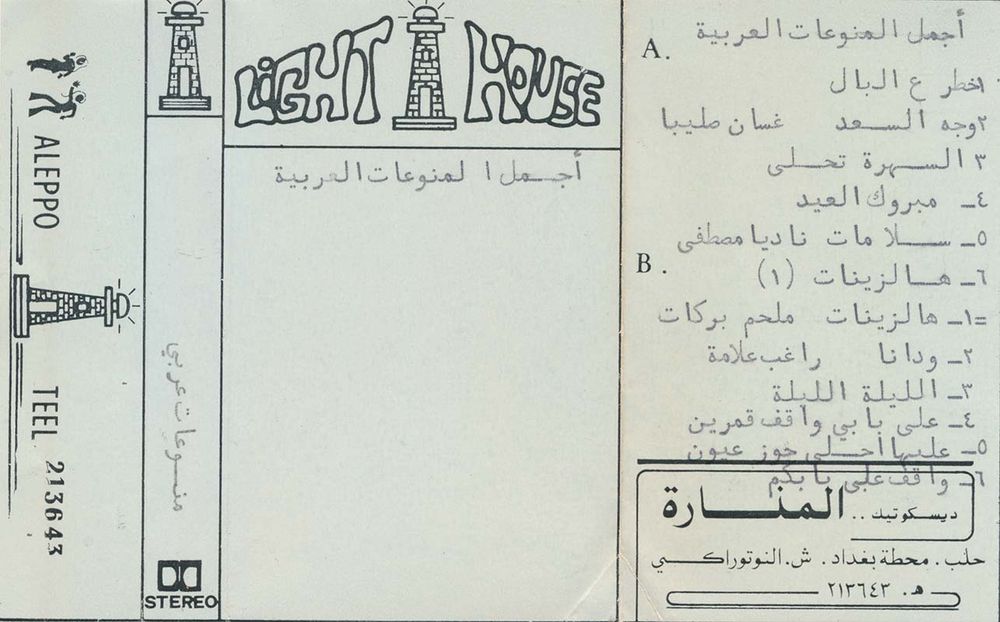 ALEPPO
TEEL 213643
منوعات عربي
STEREO
LIGHT HOUSE
أجمل المنوعات العربية
A. أجمل المنوعات العربية
١خطر ع البال
٢وجه السعد غسان صليبا
٣ السهرة تحلى
٤ـ مبروك العيد
٥ـ سلامات ناديا مصطفى
B. ٦ـ هالزينات (١)
=١ـ هالزينات ملحم بركات
٢ـ ودانا راغب علامة
٣ـ الليلة الليلة
٤ـ على بابي واقف قمرين
٥ـ عليها احلى جوز عيون
٦ـ واقف على بابكم
ديسكوتيك .. المنارة
حلب . محطة بغداد . ش. النوتوراكي
هـ . ٢١٣٦٤٣